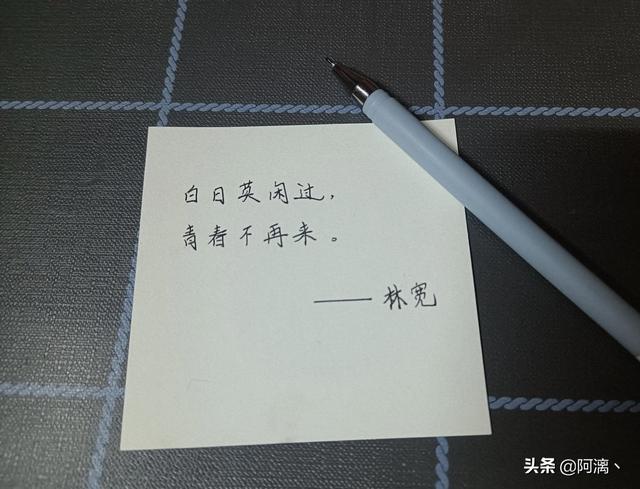 白日英闲过，
青春不再来。
—— 林宽
头条 @阿漓丶